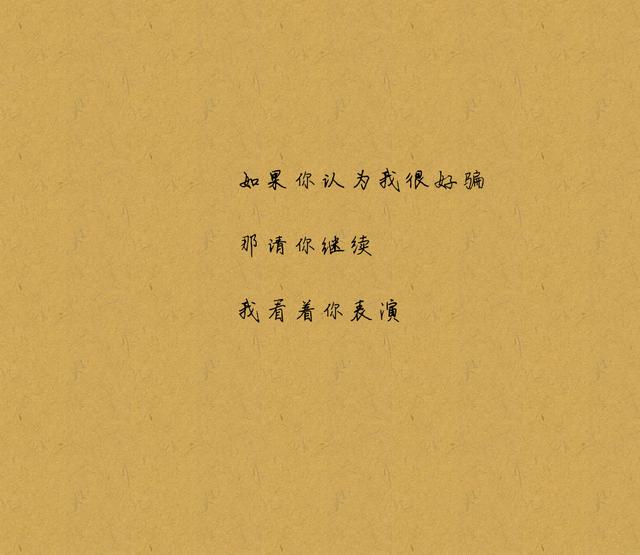 如果你认为我很好骗
那请你继续
我看着你表演